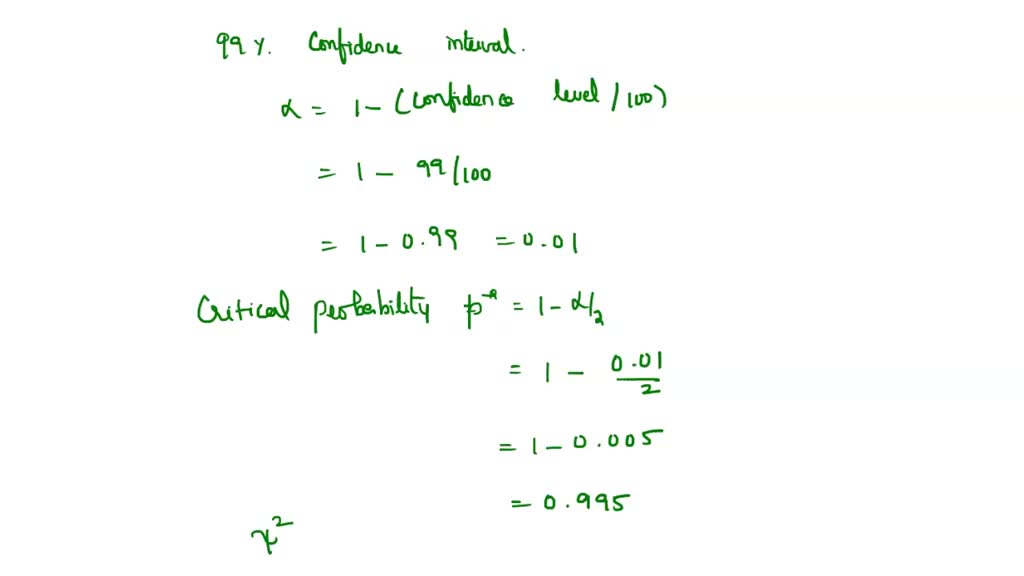 99 %. Confidence interval.
α = 1 - (confidence level / 100)
= 1 - 99/100
= 1 - 0.99 = 0.01
Critical probability p* = 1 - α/2
= 1 - 0.01/2
= 1 - 0.005
= 0.995
χ²